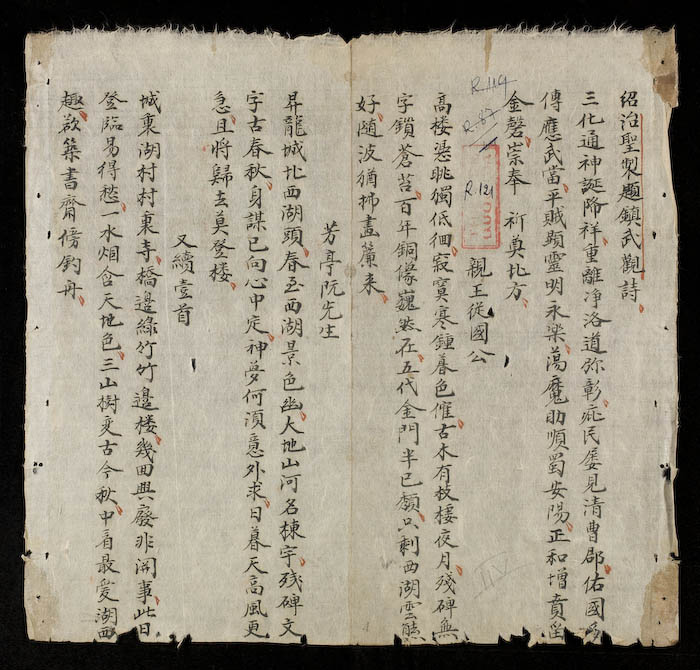 绍治聖製題鎮武觀詩
三化通神誕降祥重離净洛道弥彰祉民屡見清曹郡佑國多
傳應武當平賊顕靈明永樂蕩魔助順蜀安陽正和增賁留
金磬崇奉 祈奠北方
R.114
R.87
R.121
親王從國公
高楼凴眺獨低徊寂寞寒鍾暮色催古木有枝棲夜月残碑無
字鎖蒼苔百年銅像巍然在五代金門半已頹只剩西湖雲態
好随波猶拂畫簾来
芳亭阮先生
昇龍城北西湖頭春至西湖景色幽大地山河名棟宇残碑文
字古春秋身謀已向心中定神夢何須意外求日暮天高風更
急且將歸去莫登楼
又續壹首
城裏湖村村裏寺橋邉綠竹竹邉楼幾回興廢非関事此日
登臨易得愁一水烟含天地色三山樹変古今秋中看最愛湖西
趣欲築書齋傍釣舟